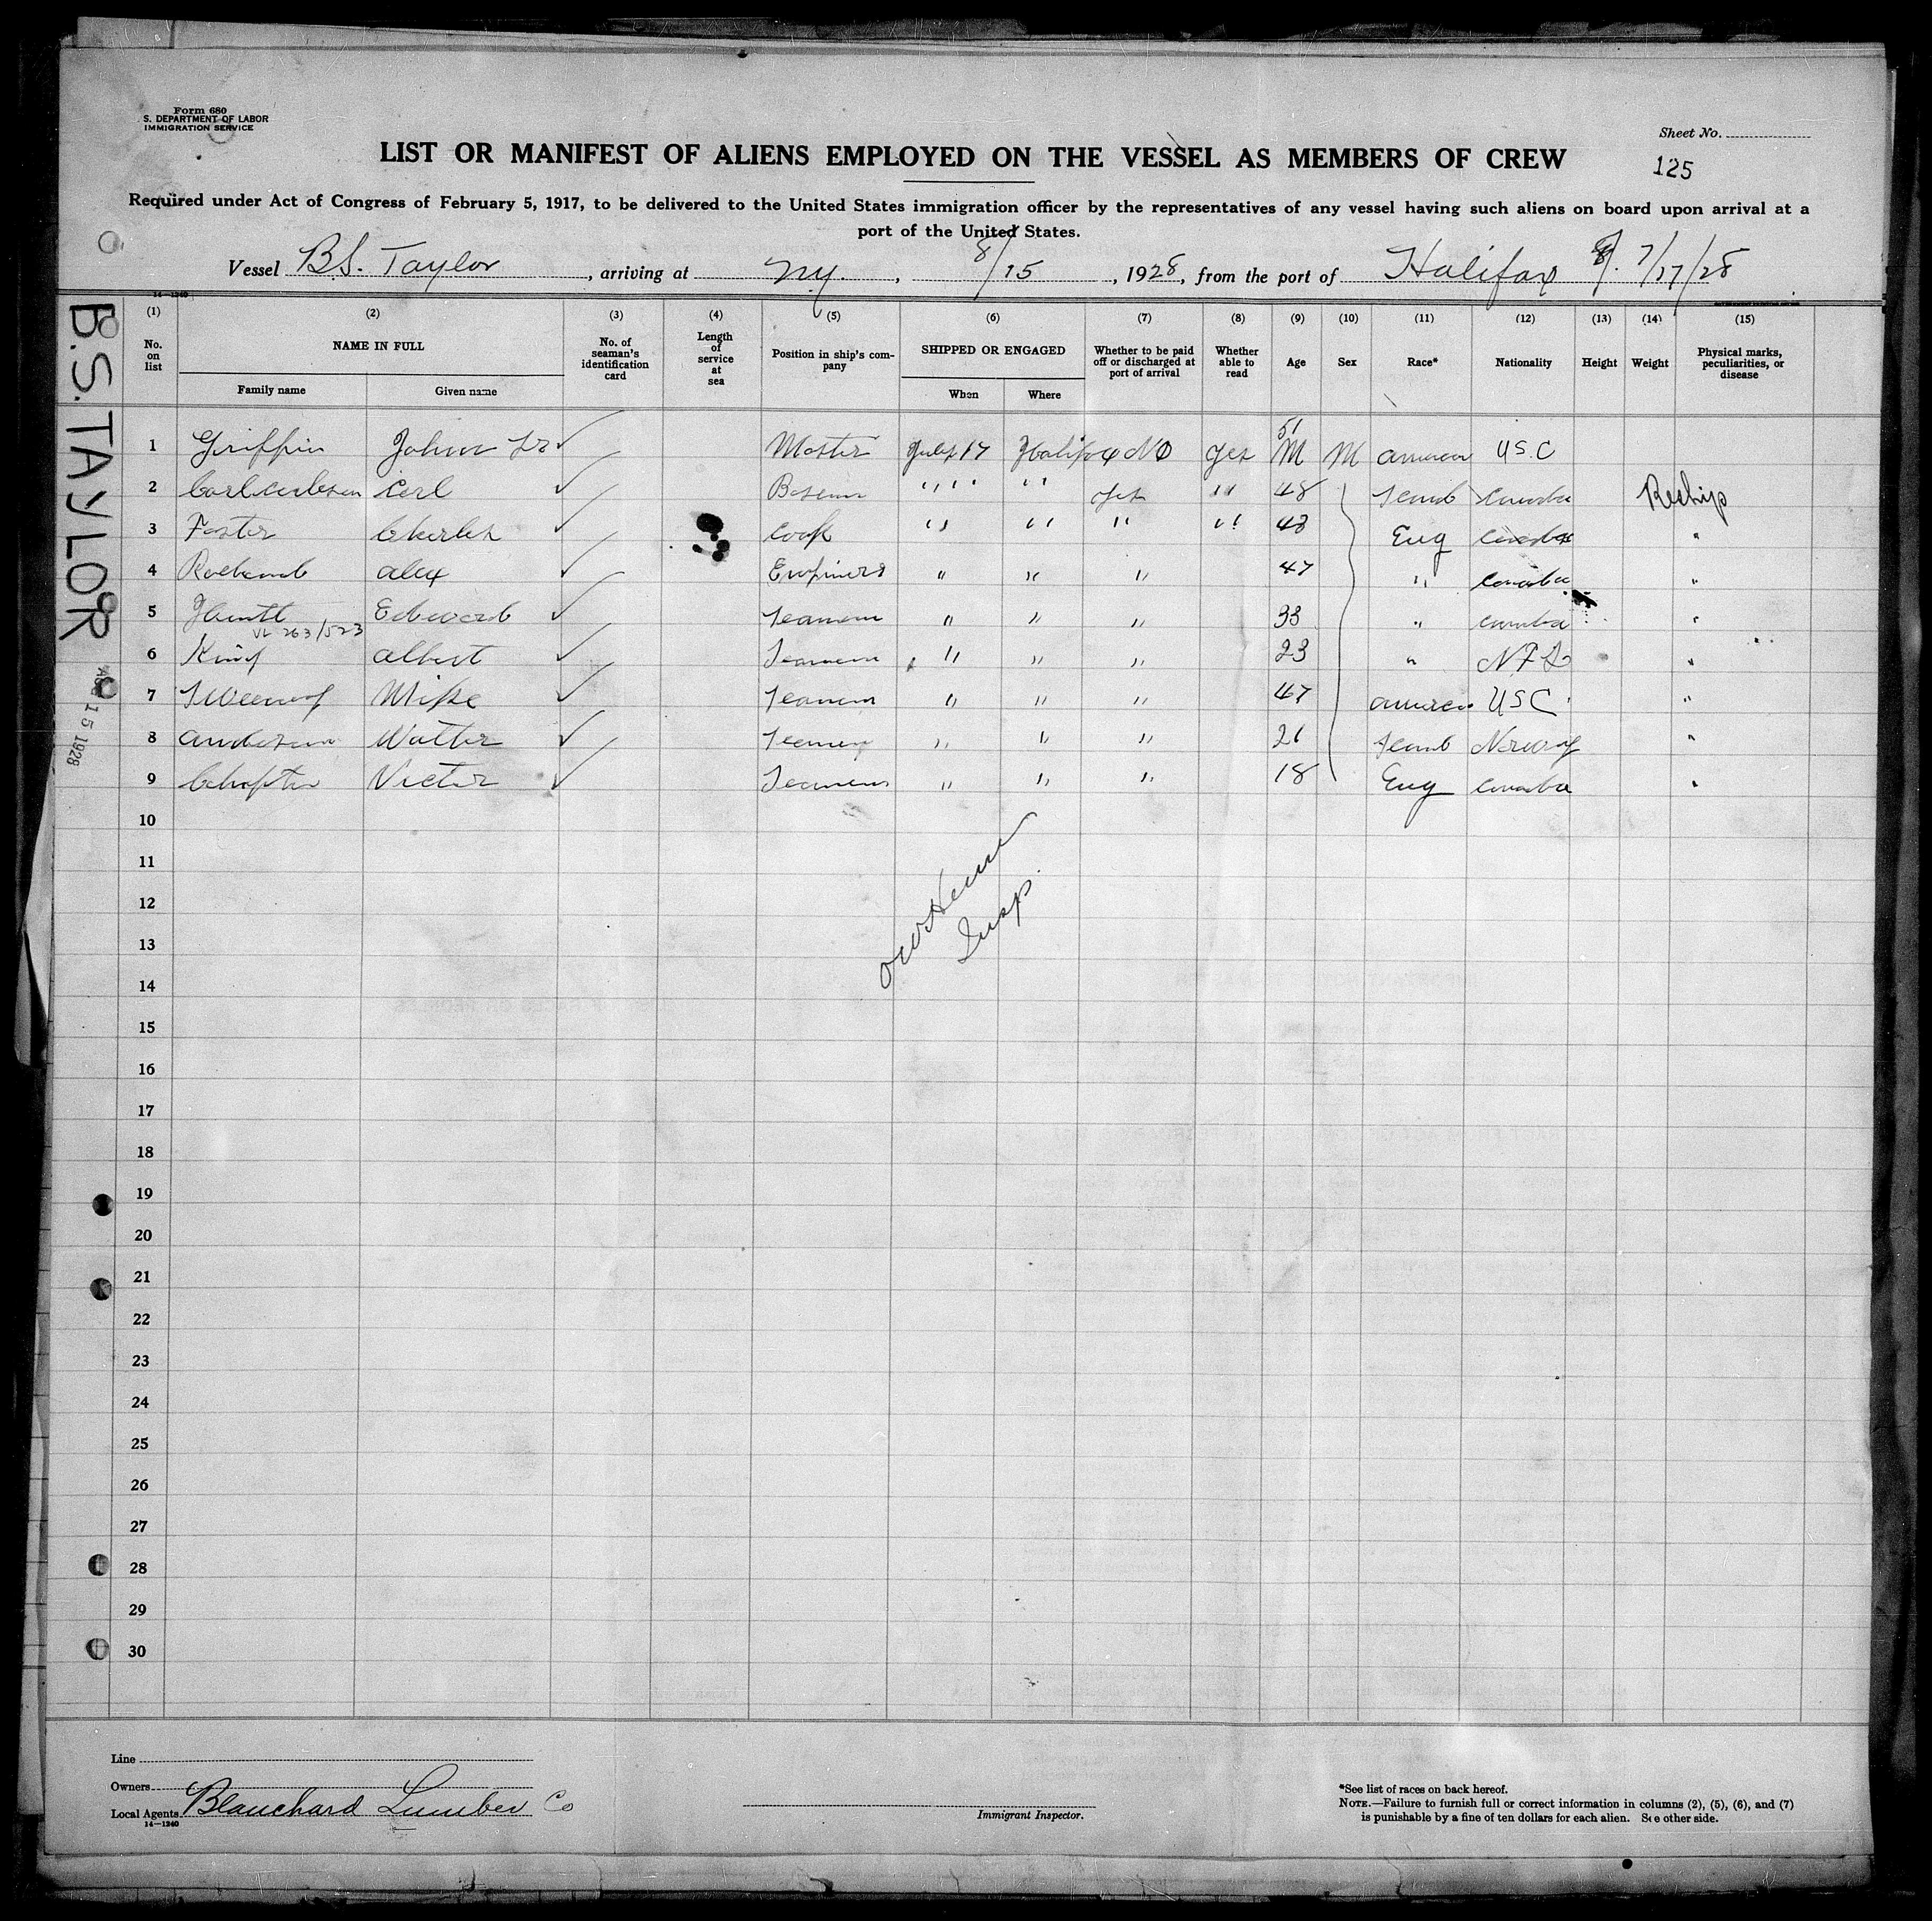 Form 680
S. DEPARTMENT OF LABOR
IMMIGRATION SERVICE
Sheet No.
125
LIST OR MANIFEST OF ALIENS EMPLOYED ON THE VESSEL AS MEMBERS OF CREW
Required under Act of Congress of February 5, 1917, to be delivered to the United States immigration officer by the representatives of any vessel having such aliens on board upon arrival at a
port of the United States.
Vessel B.S. Taylor, arriving at N.Y., 8/15, 1928, from the port of Halifax 7/17/28
B.S. TAYLOR
AUG 15 1928
14—1240
(1) (2) (3) (4) (5) (6) (7) (8) (9) (10) (11) (12) (13) (14) (15)
No. on list
NAME IN FULL
Family name
Given name
No. of seaman's identification card
Length of service at sea
Position in ship's company
SHIPPED OR ENGAGED
When
Where
Whether to be paid off or discharged at port of arrival
Whether able to read
Age
Sex
Race*
Nationality
Height
Weight
Physical marks, peculiarities, or disease
51
1 Griffin John ✓ Master July 17 Halifax NS Yes M M American USC
2 Carl ✓ " " " " Yes " " 48 Scand Canada Reship
3 Foster Charles ✓ Cook " " " " " " " 48 Eng Canada "
4 Alex ✓ Engineer " " " 47 " Canada "
5 Edward ✓ Seaman " " " 33 " Canada "
VL 263/523
6 King Albert ✓ Seaman " " " 23 " NFL "
7 Mike ✓ Seaman " " " 47 American USC "
8 Anderson Walter ✓ Seaman " " " 21 Scand Norway "
9 Victor ✓ Seaman " " " 18 Eng Canada "
10
11
12
13
14
15
16
17
18
19
20
21
22
23
24
25
26
27
28
29
30
Insp.
Line
Owners
Local Agents Blanchard Lumber Co
14—1240
Immigrant Inspector.
*See list of races on back hereof.
NOTE.—Failure to furnish full or correct information in columns (2), (5), (6), and (7)
is punishable by a fine of ten dollars for each alien. See other side.